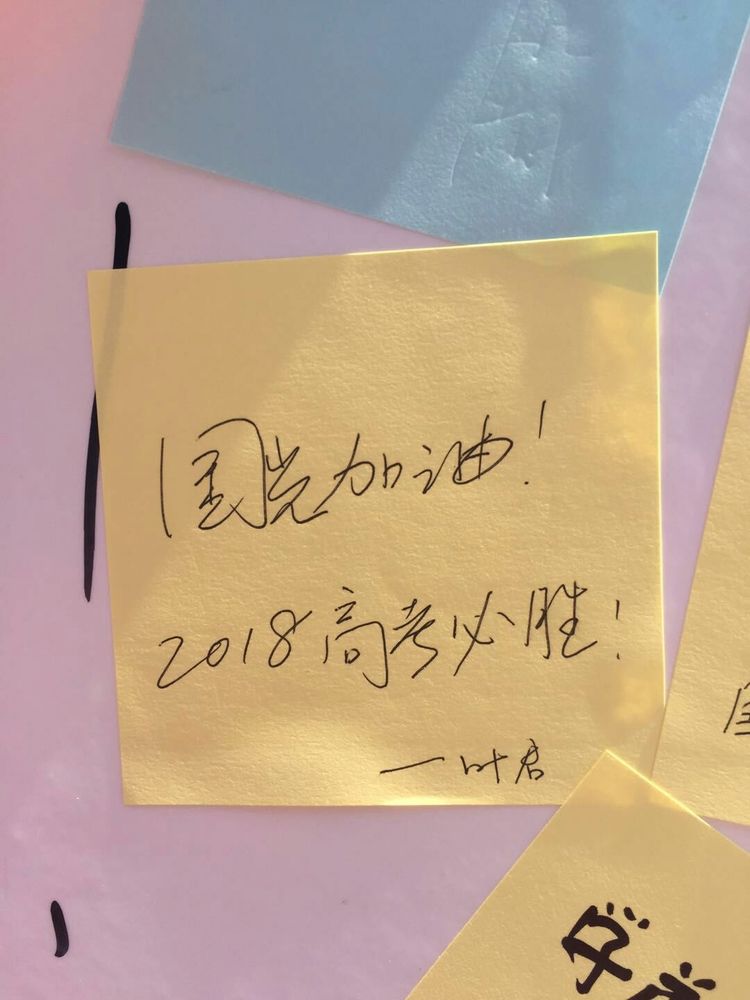 国光加油！
2018高考必胜！
一叶君